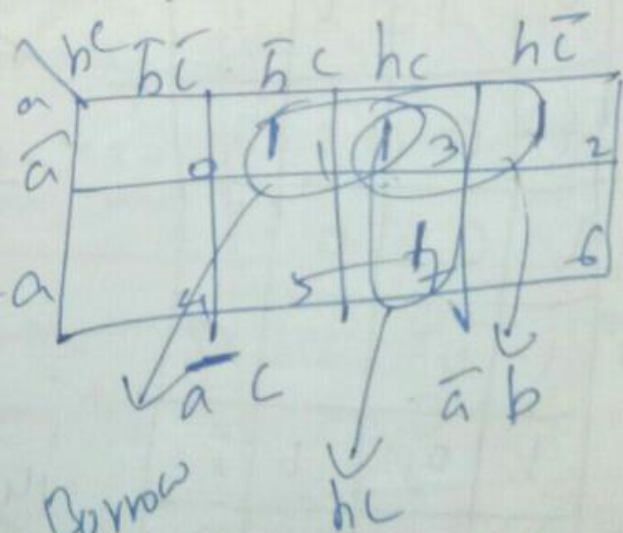 bc b̄c̄ b̄c bc bc̄
a
ā 0 1 1 1 3 1 2
a 4 5 1 7 6
āc āb
bc
Borrow